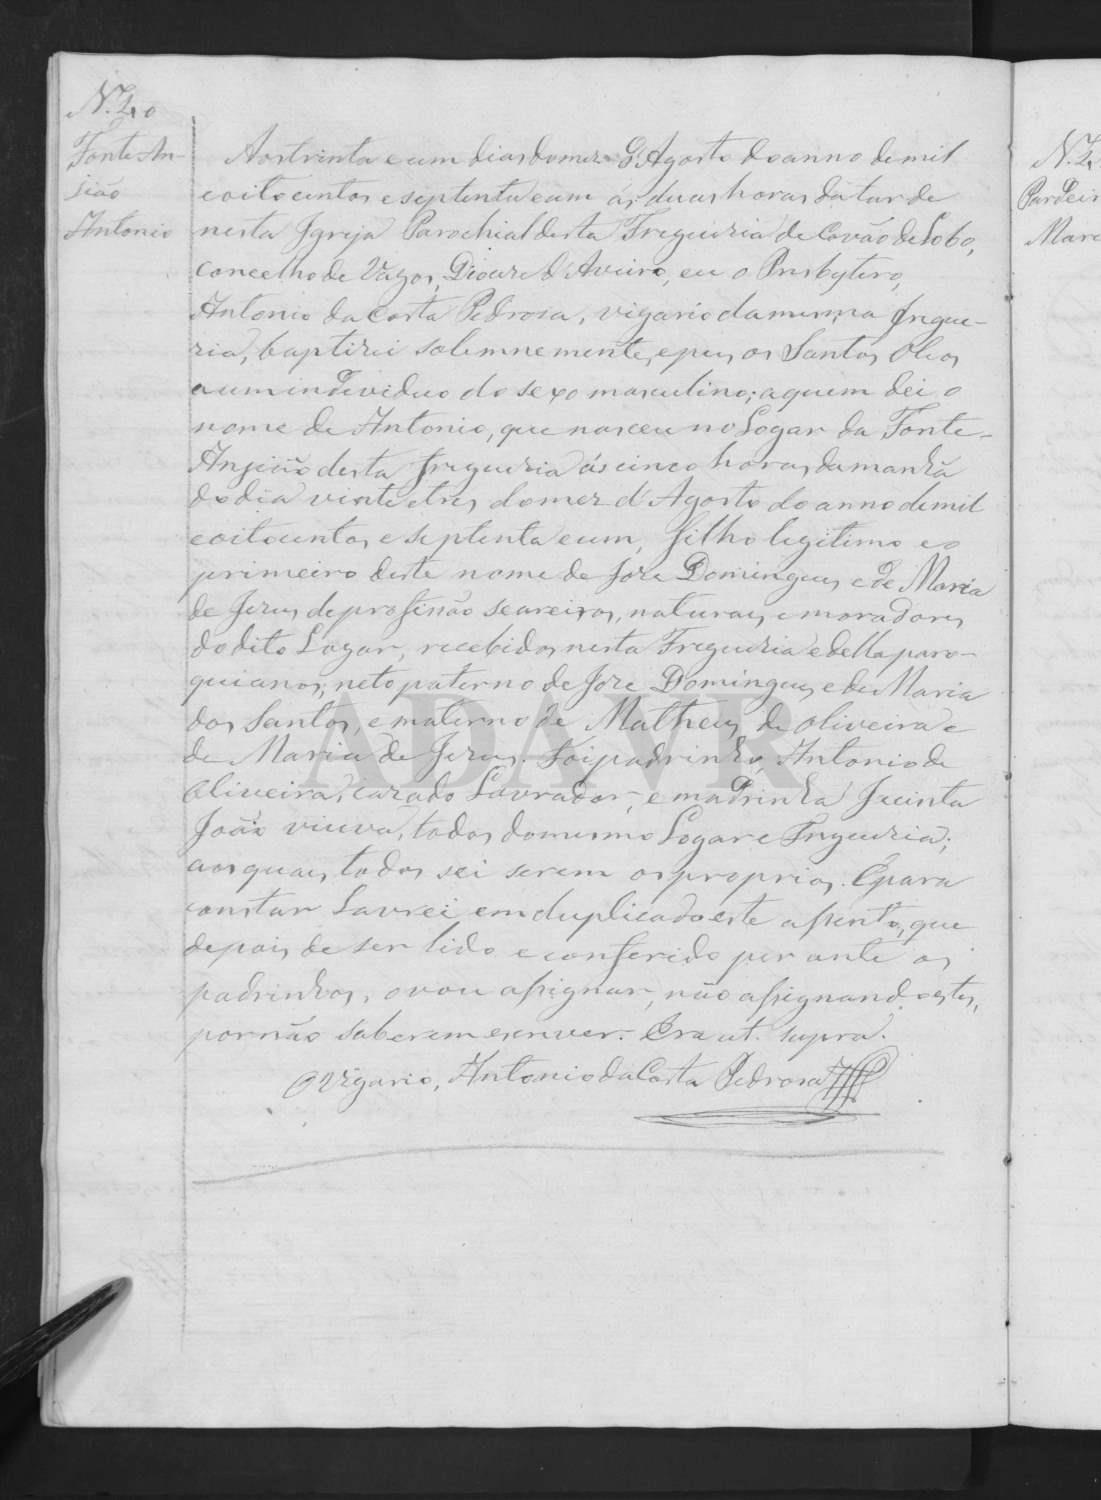 N. 40
Fonte An-
jião
Antonio
Aos trinta e um dias do mez d'Agosto do anno de mil
e oito centos e septenta e um ás duas horas da tarde
nesta Igreja Parochial desta Freguezia de Covão de Lobo,
Concelho de Vagos, Diocese d'Aveiro, eu o Presbytero,
Antonio da Costa Pedrosa, vigario da mesma Fregue-
zia, baptizei solemnemente, e puz os Santos Oleos
a um individuo do sexo masculino; a quem dei o
nome de Antonio, que nasceu no Logar da Fonte-
Anjeião desta freguezia ás cinco horas da manhã
do dia vinte e tres do mez d'Agosto do anno de mil
e oito centos e septenta e um, filho legitimo e o
primeiro deste nome de Joze Domingues e de Maria
de Jezus, de profissão seareiros, naturaes e moradores
do dito Logar, recebidos nesta Freguezia e della paro-
quianos; neto paterno de Joze Domingues e de Maria
dos Santos, e materno de Matheus de Oliveira e
de Maria de Jezus. Foi padrinho, Antonio de
Oliveira, cazado Lavrador, e madrinha Jacinta
João viuva, todos do mesmo Logar e Freguezia;
aos quaes todos sei serem os proprios. E para
constar Lavrei em duplicado este assento, que
depois de ser lido e conferido perante os
padrinhos, o vou assignar, não assignando estes,
por não saberem escrever. Era ut. supra.
O Vigario, Antonio da Costa Pedrosa
ADAVR
N. 4
Pardeir
Mari